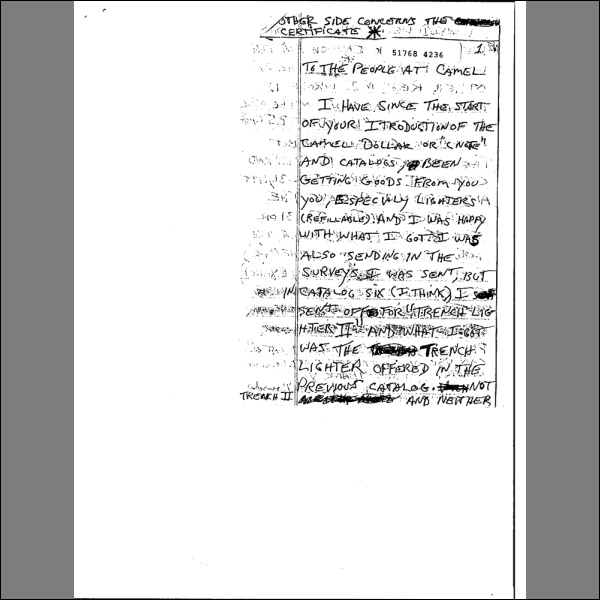 OTHER SIDE CONCERNS THE
CERTIFICATE *
51768 4236
1
TO THE PEOPLE AT CAMEL
I HAVE SINCE THE START
OF YOUR ITRODUCTION OF THE
CAMEL DOLLAR OR "C NOTE"
AND CATALOGS, BEEN
GETTING GOODS FROM YOU
YOU, ESPECIALY LIGHTERS
(REFILLABLE) AND I WAS HAPPY
WITH WHAT I GOT. I WAS
ALSO SENDING IN THE
SURVEYS I WAS SENT, BUT
IN CATALOG SIX (I THINK) I
SENT OFF FOR "TRENCH LIG
HTER II" AND WHAT I GOT
WAS THE TRENCH
LIGHTER OFFERED IN THE
PREVIOUS CATALOG. NOT
TRENCH II AND NEITHER